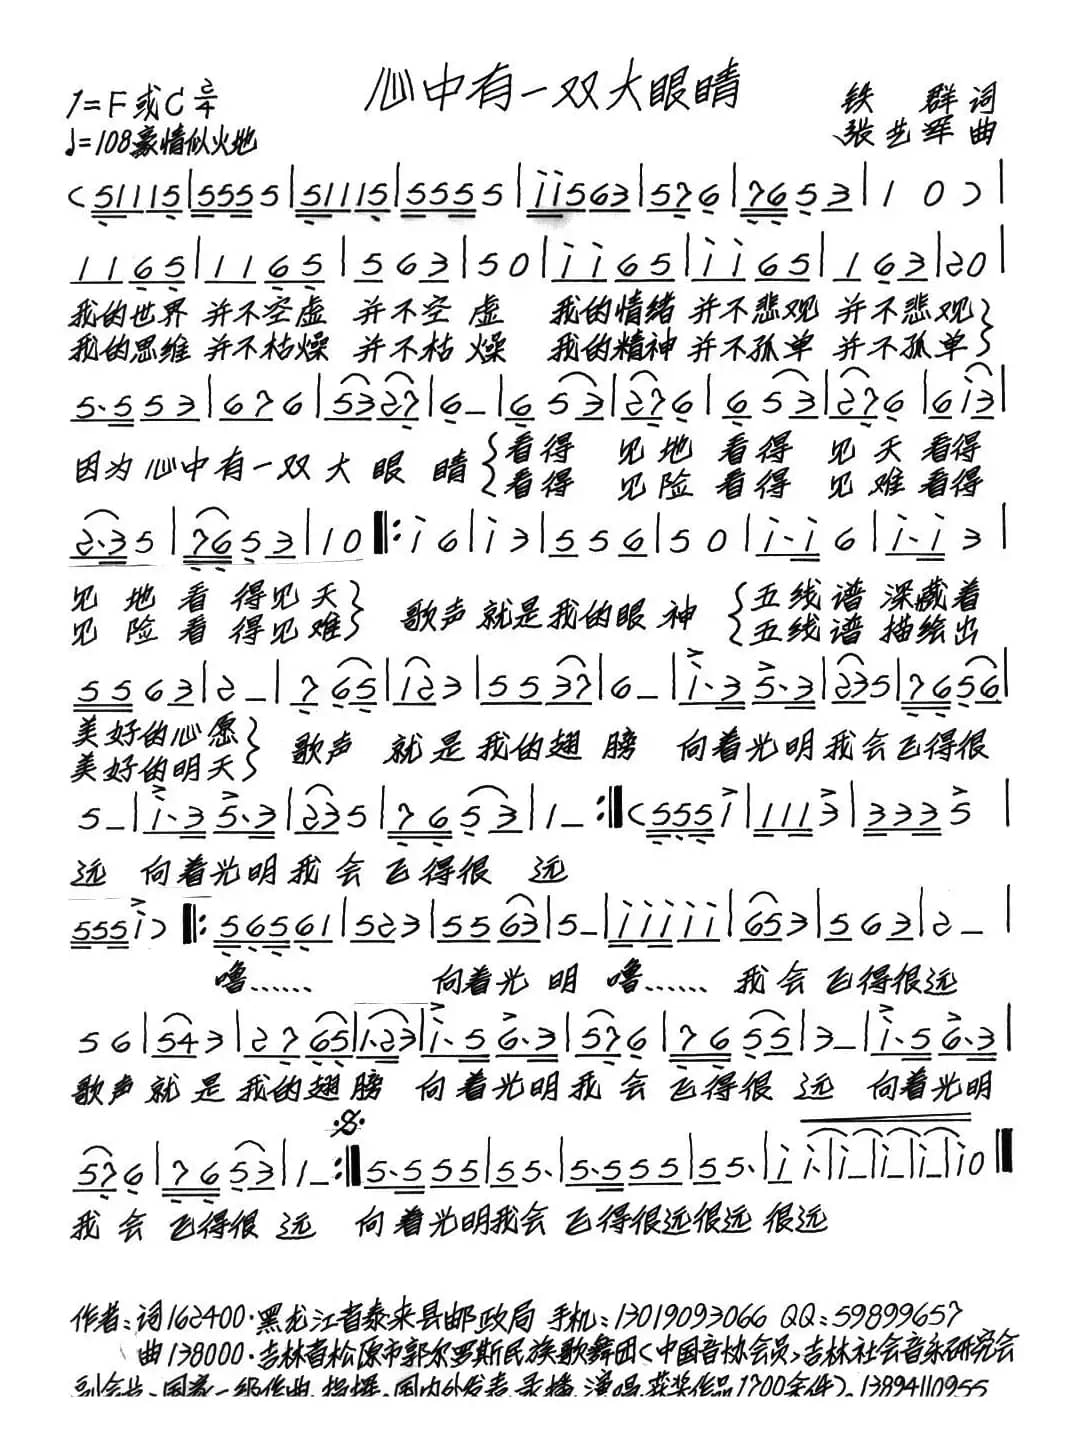 心中有一双大眼睛
1=F或C 2/4
铁 群 词
♩=108豪情似火地
张艺军 曲
(51115|55555|51115|55555|i i 563|576|7653|1 0)|
1165|1165|563|50|i i 65|i i 65|163|20|
我的世界 并不空虚 并不空虚 我的情绪 并不悲观 并不悲观
我的思维 并不枯燥 并不枯燥 我的精神 并不孤单 并不孤单
5·553|676|5327|6_|653|276|653|276|6i3|
因为心中有一双大眼睛 看得 见地 看得 见天 看得
看得 见险 看得 见难 看得
2·35|7653|10‖:i6|i3|556|50|i·i6|i·i3|
见地看得见天
见险看得见难
歌声就是我的眼神
五线谱深藏着
五线谱描绘出
5563|2_|765|123|5537|6_|i·35·3|235|7656|
美好的心愿
美好的明天
歌声 就是我的翅膀 向着光明我会飞得很
5_|i·35·3|235|7653|1_:‖(555i|1113|3335|
远 向着光明我会飞得很 远
555i)‖:56561|523|5563|5_|i i i i i|653|563|2_|
噜…… 向着光明 噜…… 我会飞得很远
56|543|2765|1·23|i·56·3|576|7655|3_|i·56·3|
歌声就是我的翅膀 向着光明我会飞得很远 向着光明
576|7653|1_:‖5·555|55·|5·555|55·|i i·|i_|i_|i_|i0‖
我会飞得很远 向着光明我会飞得很远很远很远
作者:词162400·黑龙江省泰来县邮政局 手机:13019093066 QQ:59899657
曲138000·吉林省松原市郭尔罗斯民族歌舞团(中国音协会员,吉林社会音乐研究会
副会长、国家一级作曲、指挥、国内外发表、录播、演唱、获奖作品1700余件)、13894110955